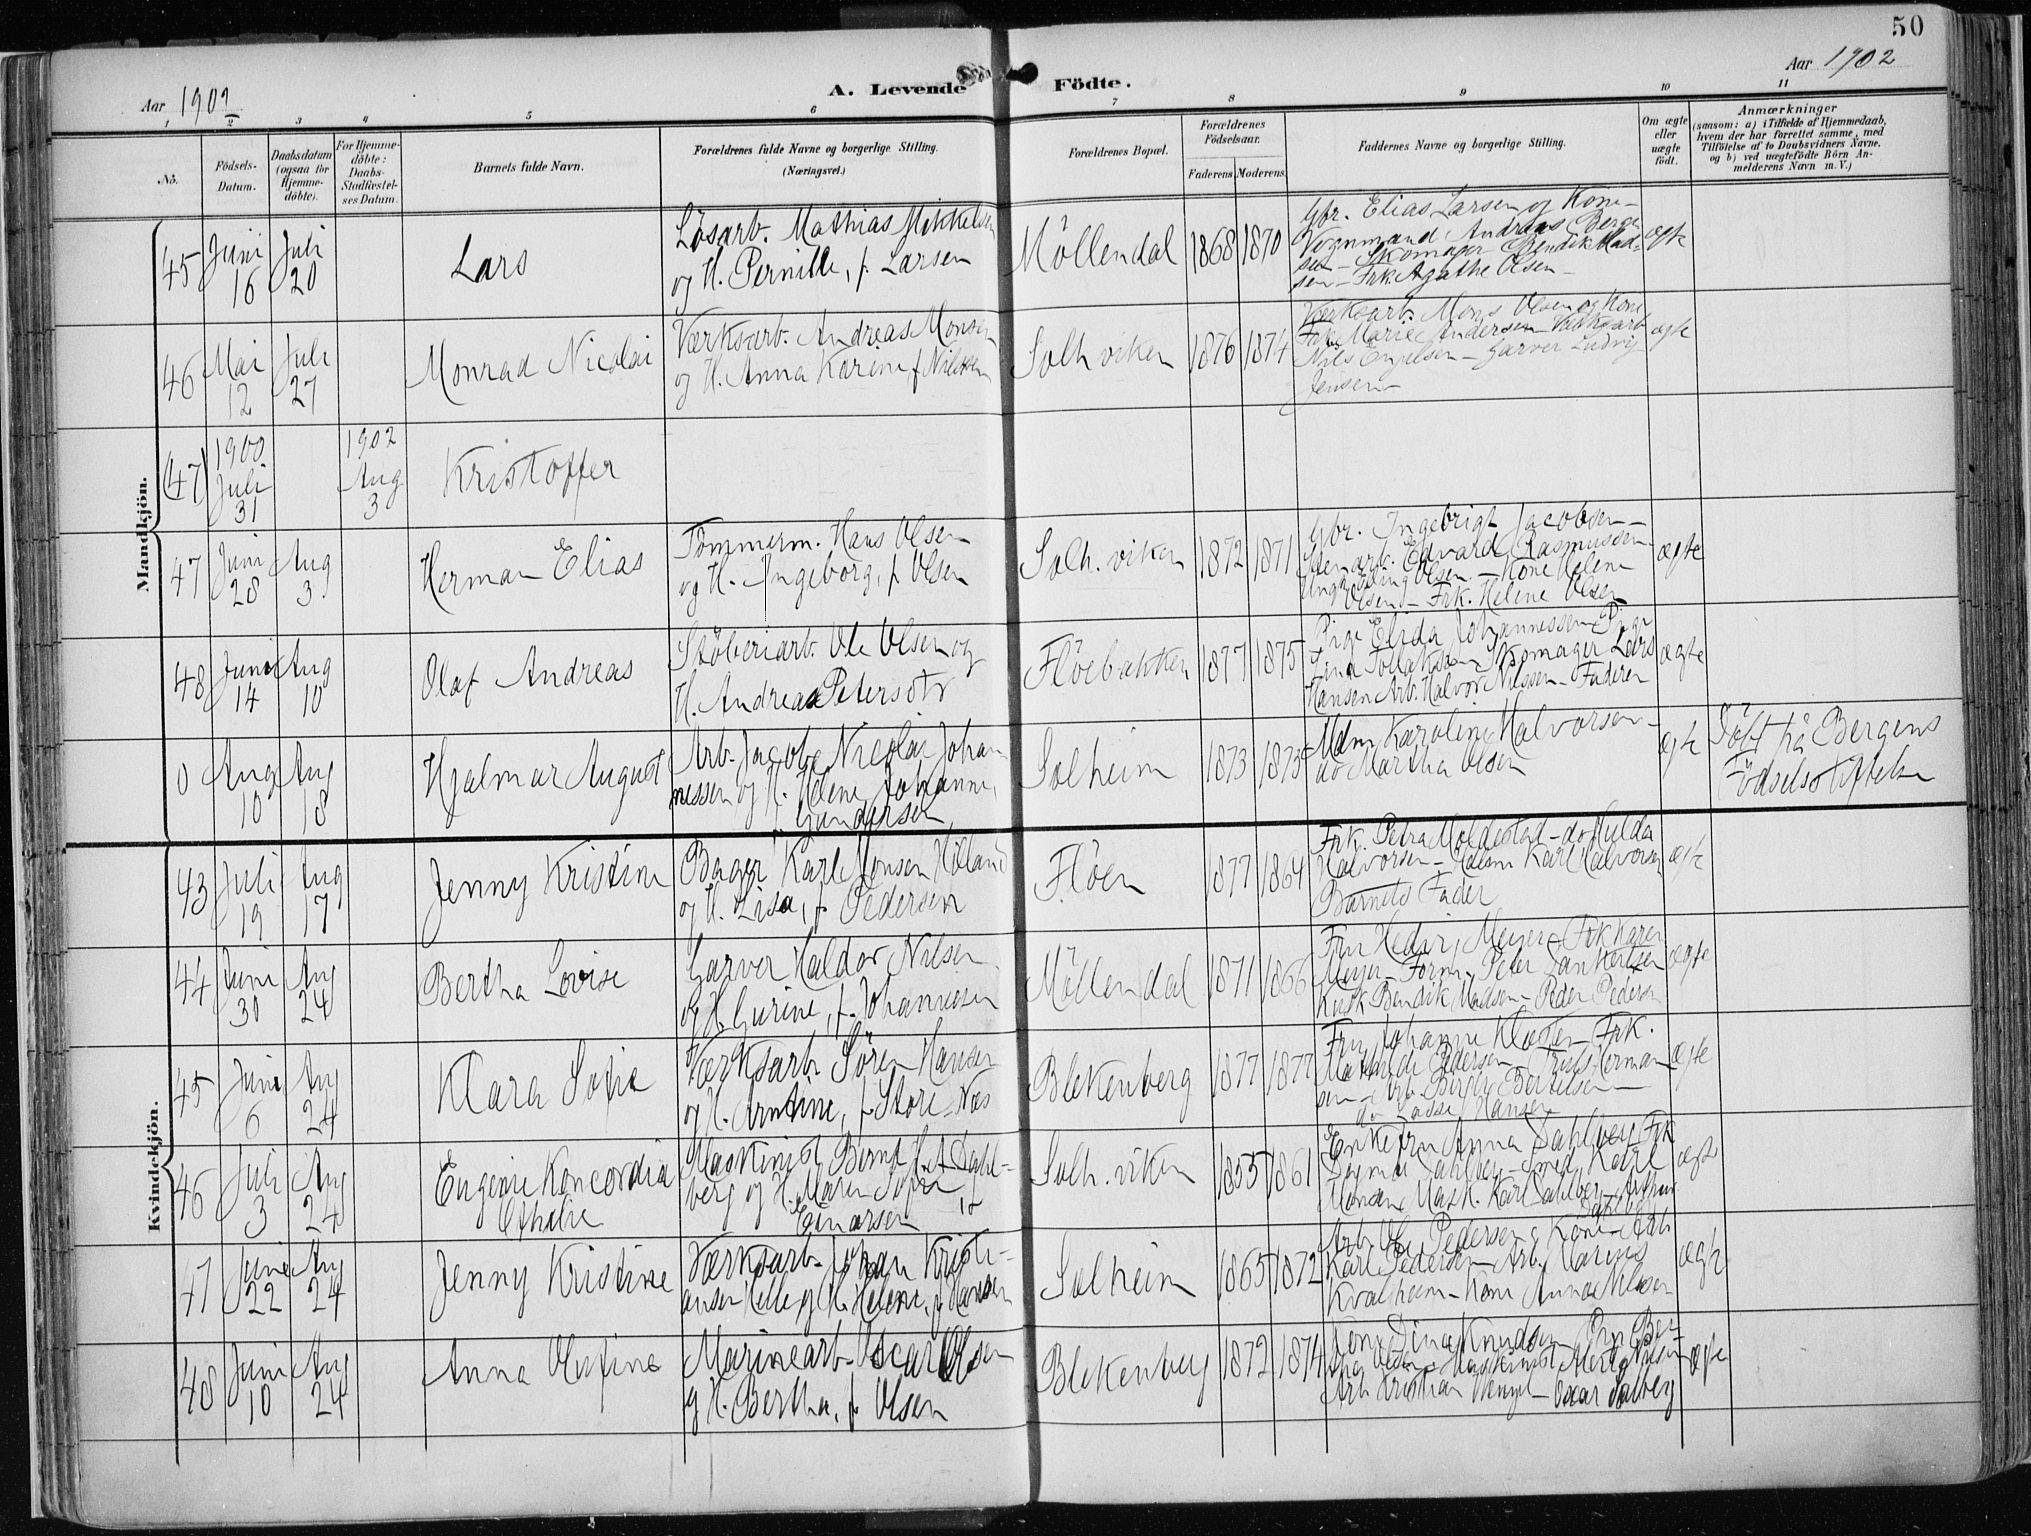 50
Aar 1902
A. Levende Födte.
Aar 1902
1 2 3 4 5 6 7 8 9 10 11
No.
Födsels-Datum.
Daabsdatum (ogsaa for Hjemme-döbte).
For Hjemme-döbte: Daabs-Stadfæstel-ses Datum.
Barnets fulde Navn.
Forældrenes fulde Navne og borgerlige Stilling. (Næringsvei.)
Forældrenes Bopæl.
Forældrenes Födselsaar.
Faderens Moderens
Faddernes Navne og borgerlige Stilling.
Om ægte eller uægte födt.
Anmærkninger
(saasom: a) i Tilfælde af Hjemmedaab, hvem der har forrettet samme, med Tilföielse af to Daabsvidners Navne, og b) ved uægtefödte Börn An-melderens Navn m. V.)
Mandkjön.
45 Juni 16 Juli 20 Lars
Lösarb. Mathias Mikkelsen
og H. Pernille, f. Larsen
Möllendal 1868 1870
Gbr. Elias Larsen og Kone -
Vognmand Andreas Berge
sen - Skomager Bendik Mad-
sen - Frk. Agathe Olsen -
ægte
46 Mai 12 Juli 27 Monrad Nicolai
Værksarb. Andreas Monsen
og H. Anna Karine f Nilsen
Solh.viken 1876 1874
Værksarb. Mons Olsen og Kone
Frk. Marie Andersen - Værksarb
Nils Engelsen - Garver Ludvig
Jensen -
ægte
(47) 1900 Juli 31 1902 Aug 3 Kristoffer
47 Juni 28 Aug 3 Herman Elias
Tömmerm. Hans Olsen
og H. Ingeborg, f. Olsen
Solh. viken 1872 1871
Gbr. Ingebrigt Jacobsen -
Stenarb. Edvard Rasmussen
Ungk Olsen - Kone Helene
Olsen - Frk. Helene Olsen
ægte
48 Juni 14 Aug 10 Olaf Andreas
Stöberiarb. Ole Olsen og
H. Andrea Petersdtr
Flöebakken 1877 1875
Pige Elida Johannessen Pige
Lina Tollaksen Skomager Lars
Hansen Arb. Halvor Nilssen - Faderen
ægte
0 Aug 10 Aug 18 Hjalmar August
Arb. Jacob Nicolai Johan
nessen og H. Helene Johanne,
f. Gundersen
Solheim 1873 1873
Mdm Karoline Halvorsen -
do Martha Olsen
ægte
Födt på Bergens
Födselsstiftelse
Kvindekjön.
43 Juli 19 Aug 17 Jenny Kristine
Bager Karl Monsen Hölland
og H. Lisa, f. Pedersen
Flöen 1877 1864
Frk. Petra Moldestad - do Hulda
Halvorsen - Karl Halvorsen
Barnets Fader
ægte
44 Juni 30 Aug 24 Bertha Lovise
Garver Haldor Nilsen
og H Gurine, f. Johannesen
Möllendal 1871 1866
Fru Hedvig Meyer - Frk Karen
Meyer - Form. Peter Dankertsen
Kusk Bendik Madsen - Peder Pedersen
ægte
45 Juni 6 Aug 24 Klara Sofie
Værksarb. Sören Hansen
og H. Arntine, f. Store-Næs
Blekenberg 1877 1877
Fru Johanne Kloster - Frk.
Mathilde Pedersen - Herman
sen - Arb. Berthelsen -
do Lasse Hansen
ægte
46 Juli 3 Aug 24 Eugenie Koncordia
Othilie
Maskinist Bernt Dahl-
berg og H. Maren Sofie
Einarsen
Solh. viken 1855 1861
Enkefru Anna Dahlberg Frk
Dagmar Dahlberg - Smed Karl
Monsen Mask. Karl Dahlberg - Arthur
Dahlberg
ægte
47 Juni 22 Aug 24 Jenny Kristine
Værksarb. Johan Kristi-
ansen Helle og H. Helene, f. Hansen
Solheim 1865 1872
Arb. Ole Pedersen & Kone - Arb
Karl Pedersen - Arb. Marius
Kvalheim - Kone Anna Nilsen
ægte
48 Juni 10 Aug 24 Anna Olufine
Marinearb. Oscar Olsen
og H. Bertha, f. Olsen
Blekenberg 1872 1874
Kone Dina Knudsen Fru Ber-
tha Olsen - Maskinist Nilsen
Arb Kristian - Oscar Salberg
ægte